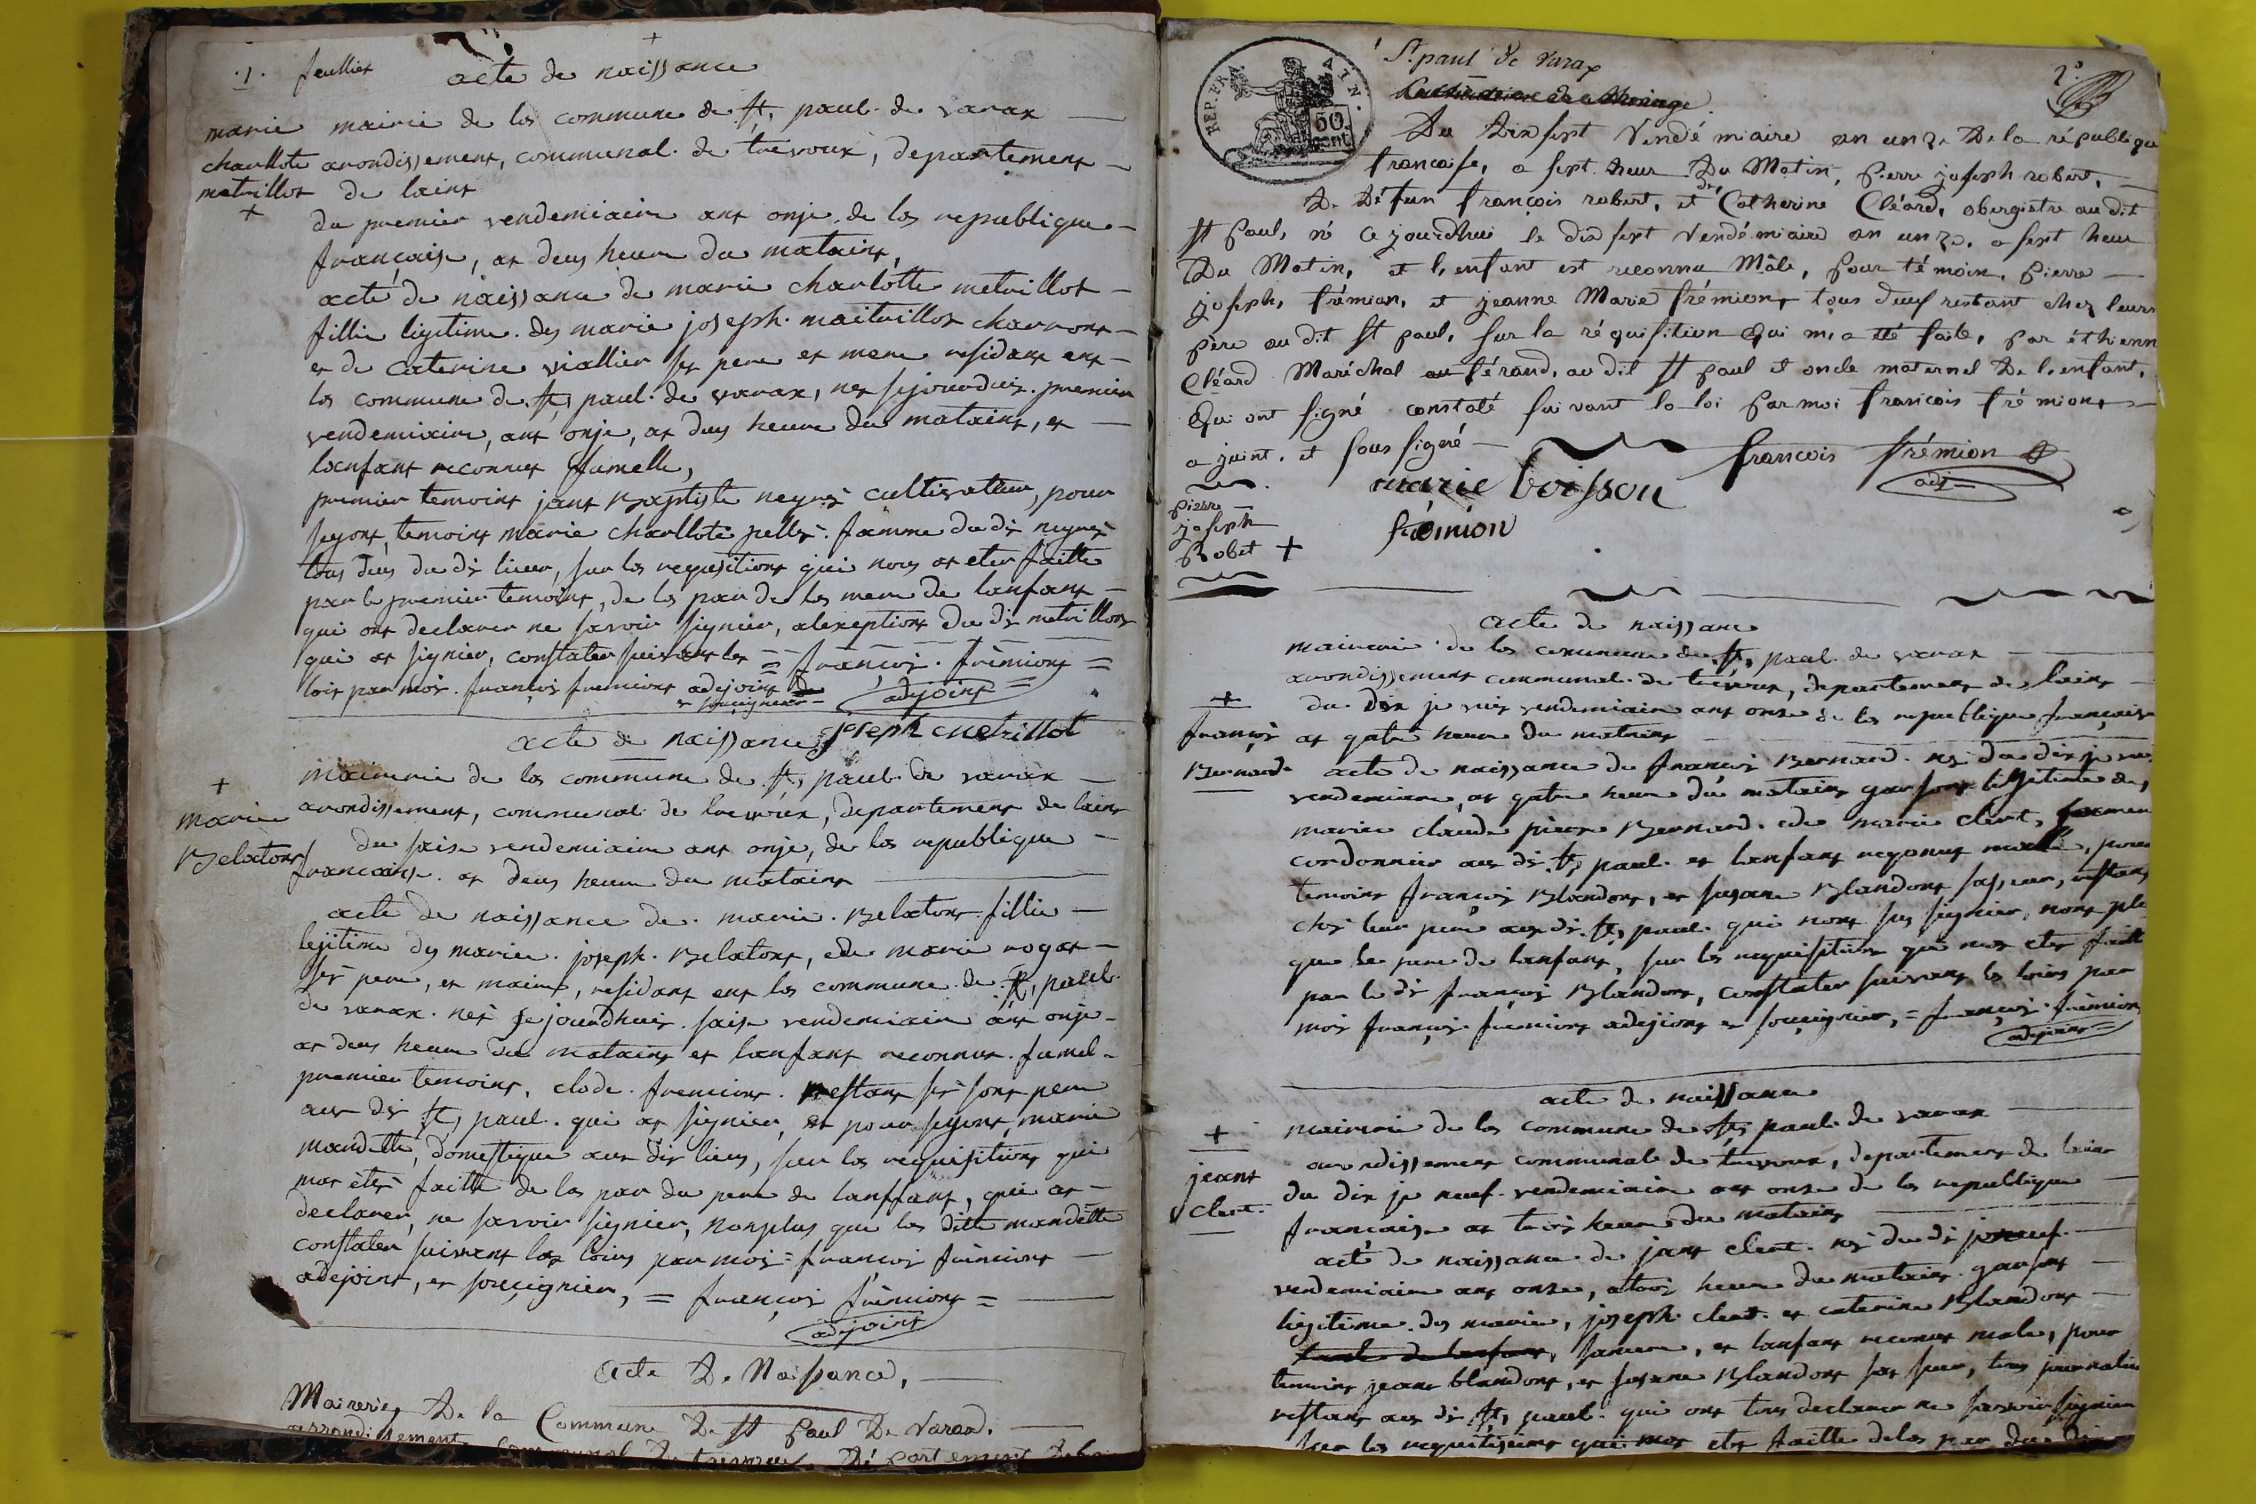 .1. feuillet
acte de naissance
marie
charllote
metrillot
mairie de las commune de st, paul. de varax
arondissement, communal. de trevoux, departement
de laint
du premier vendemiaire ant onje, de las republique
française, at deus heure du mataint,
acte de naissance de marie charlotte metrillot
fillie ligitime. des marie joseph. maitrillot charront
et de caterine viallier ses pere et mere residant ent
las commune de. st, paul. de varax, nes sejourduis. premier
vendemiaire, ant onje, at deus heure du mataint, et
lanfant reconnut fumelle,
premier temoint jant Baptiste neyret cultivateur, pour
segont, temoint marie charllote pellet. famme du dit neyret
tous deus du dit lieux, sur las requisitiont qui nous at eter faitte
par le premier temoint, de las par de las mere de lanfant
qui ont declarer ne savoir signier, alexeptiont du dit metrillont
qui at signier, constater suivant les = françois. frémiont =
lois par mois. françois fremiont adejoint
et souçignier
adejoint
acte de naissance joseph Metrillot
marie
Belatont
mairerie de las commune de. st, paul. de varax
arondissement, communal. de trevoux, departement de laint
du saise vendemiaire ant onje, de las republique
française. at deus heure du mataint
acte de naissance de. marie. Belatont. fillie
lejitime des marier. joseph. Belatont, ede marie rogat
ses pere, et maire, residant ent las commune. de. st, paul.
de varax. net sejourdhuis. saise vendemiaire ant onje
at deus heure du mataint et lanfant reconnut. fumel
premier temoint, clode. fremiont. restant ses sont pere
aux dit st, paul. qui at signier, et pour segont, marie
mandette, domestique aux dit lieus, sur las requisitiont qui
mat étés faitte de las par du pere de lanffant, qui at
declarer, ne savoir signier, nonplus que las ditte mandette
constater suivant las loins par mois = françois frémiont
adejoint, et souçignier, = françois frémiont =
adejoint
Acte De Naissance,
Mairerie De la Commune De St paul De Varax.
arrondissement communal De trevoux, Département
St. paul de Varax
2e.
REP. FRA.
50
cent
Du Dix sept Vendé miaire an unze De la république
francaise, a sept heur Du Matin, pierre joseph robert,
De Défun françois robert, et de Catherine Cléard, obergistre au dit
st paul, né ce jourdhui le dix sept Vendémiaire an unze, a sept heur
Du Matin, et l'enfant est reconnu Mâle, pour témoin, pierre
joseph, frémion, et jeanne Marie frémiont tous deux restant chez leurs
père au dit st paul, sur la réquisition Qui m'a été faite, par éthienn
Cléard Maréchal férand, au dit st paul et oncle maternel De l'enfant,
Qui ont signé constaté suivant la loi par moi francois frémiont
a juint, et sous signé
francois frémion
adj
marie boisson
frémion
pierre
joseph
Robet +
acte de naissance
mairerie de las commune de. st, paul. de varax
arondissement communal. de trévoux, departement de laint
du dix je vuit vendemiaire ant onse de las republique française
at qatre heure du mataint
françois
Bernard
acte de naissance de françois Bernard. nes du dix je vuit
vendemiaire, at qatre heure du mataint garsont lesjitime des
marier claude pierre Bernard. ede marie clert,
cordonnier aux dit. st, paul. et lanfant reconnut male, pour
temoint françois Blandont, et susane Blandont sas seur, restant
ches leur pere aux dit. st, paul. qui nont sus signier, nont plu
que le pere de lanfant, sur las requisitiont qui mat etes faitt
par le dit françois Blandont, constater suivant las loins par
mois françois fremiont adejoint et souçignier, = françois. frémiont
adejoint =
acte de naissance
jeant
clert.
mairerie de las commune de st, paul. de varax
arondissement communal. de trevoux, departement de laint
du dix je neuf. vendemiaire ant onse de las republique
française at trois heure du mataint
acte de naissance. de jant clert. nes du dit
vendemiaire ant onse, atrois heure du mataint. garsont
liegitime. des marier, joseph. clert. et caterine Blandont
famme, et lanfant reconnut male, pour
temoint jeant blandont, et susane Blandont sas seur, tous journalier
restant aux dit. st, paul. qui ont tous declarer ne savoir signier
sur las requitisiont qui mat etes faitte delas par du dit